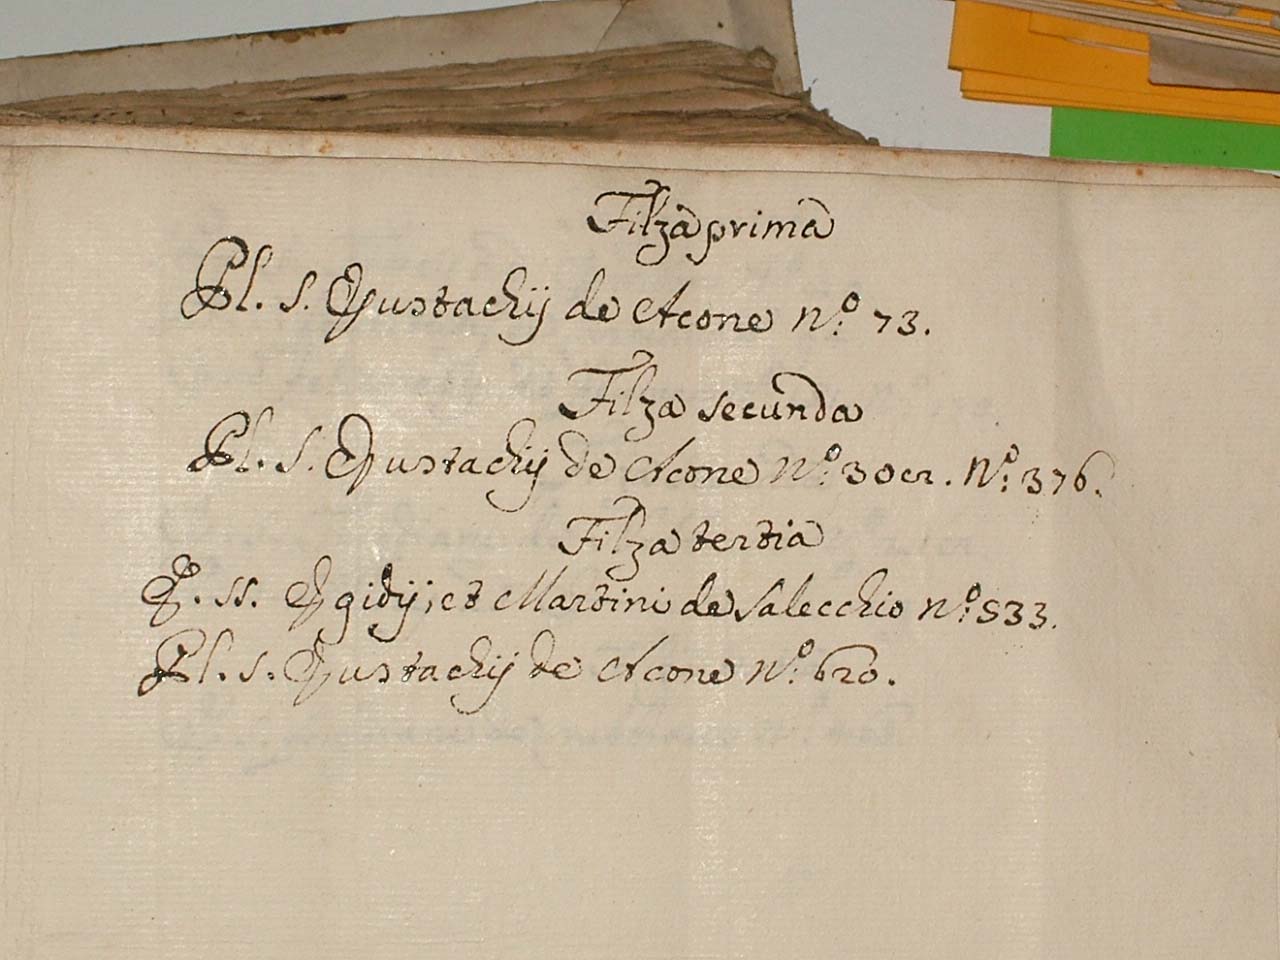 Filza prima
Pl. S. Eustachij de Acone N.º 73.
Filza secunda
Pl. S. Eustachij de Acone N.º 30 et N.º 376.
Filza tertia
E. SS. Egidij, et Martini de Salecchio N.º 533.
Pl. S. Eustachij de Acone N.º 620.